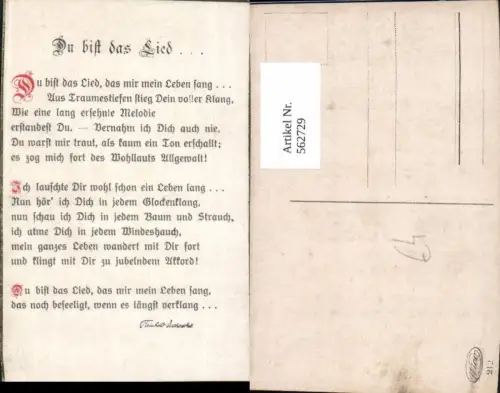 Du bist das Lied . . .
Du bist das Lied, das mir mein Leben sang . . .
Aus Traumestiefen stieg Dein voller Klang,
Wie eine lang ersehnte Melodie
erstandest Du. — Vernahm ich Dich auch nie.
Du warst mir traut, als kaum ein Ton erschallt;
es zog mich fort des Wohllauts Allgewalt!
Ich lauschte Dir wohl schon ein Leben lang . . .
Nun hör' ich Dich in jedem Glockenklang,
nun schau ich Dich in jedem Baum und Strauch,
ich atme Dich in jedem Windeshauch,
mein ganzes Leben wandert mit Dir fort
und klingt mit Dir zu jubelndem Akkord!
Du bist das Lied, das mir mein Leben sang,
das noch beseeligt, wenn es längst verklang . . .
Artikel Nr.
562729